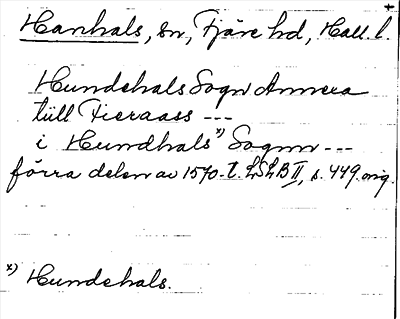 Hanhals, sn, Fjäre hd, Hall. l.
Hundehals Sogn Annexa
till Fieraass ---
i Hundhals x) Sognn ---
förra delen av 1570-t. LSLB II, s. 449. orig.
x) Hundehals.